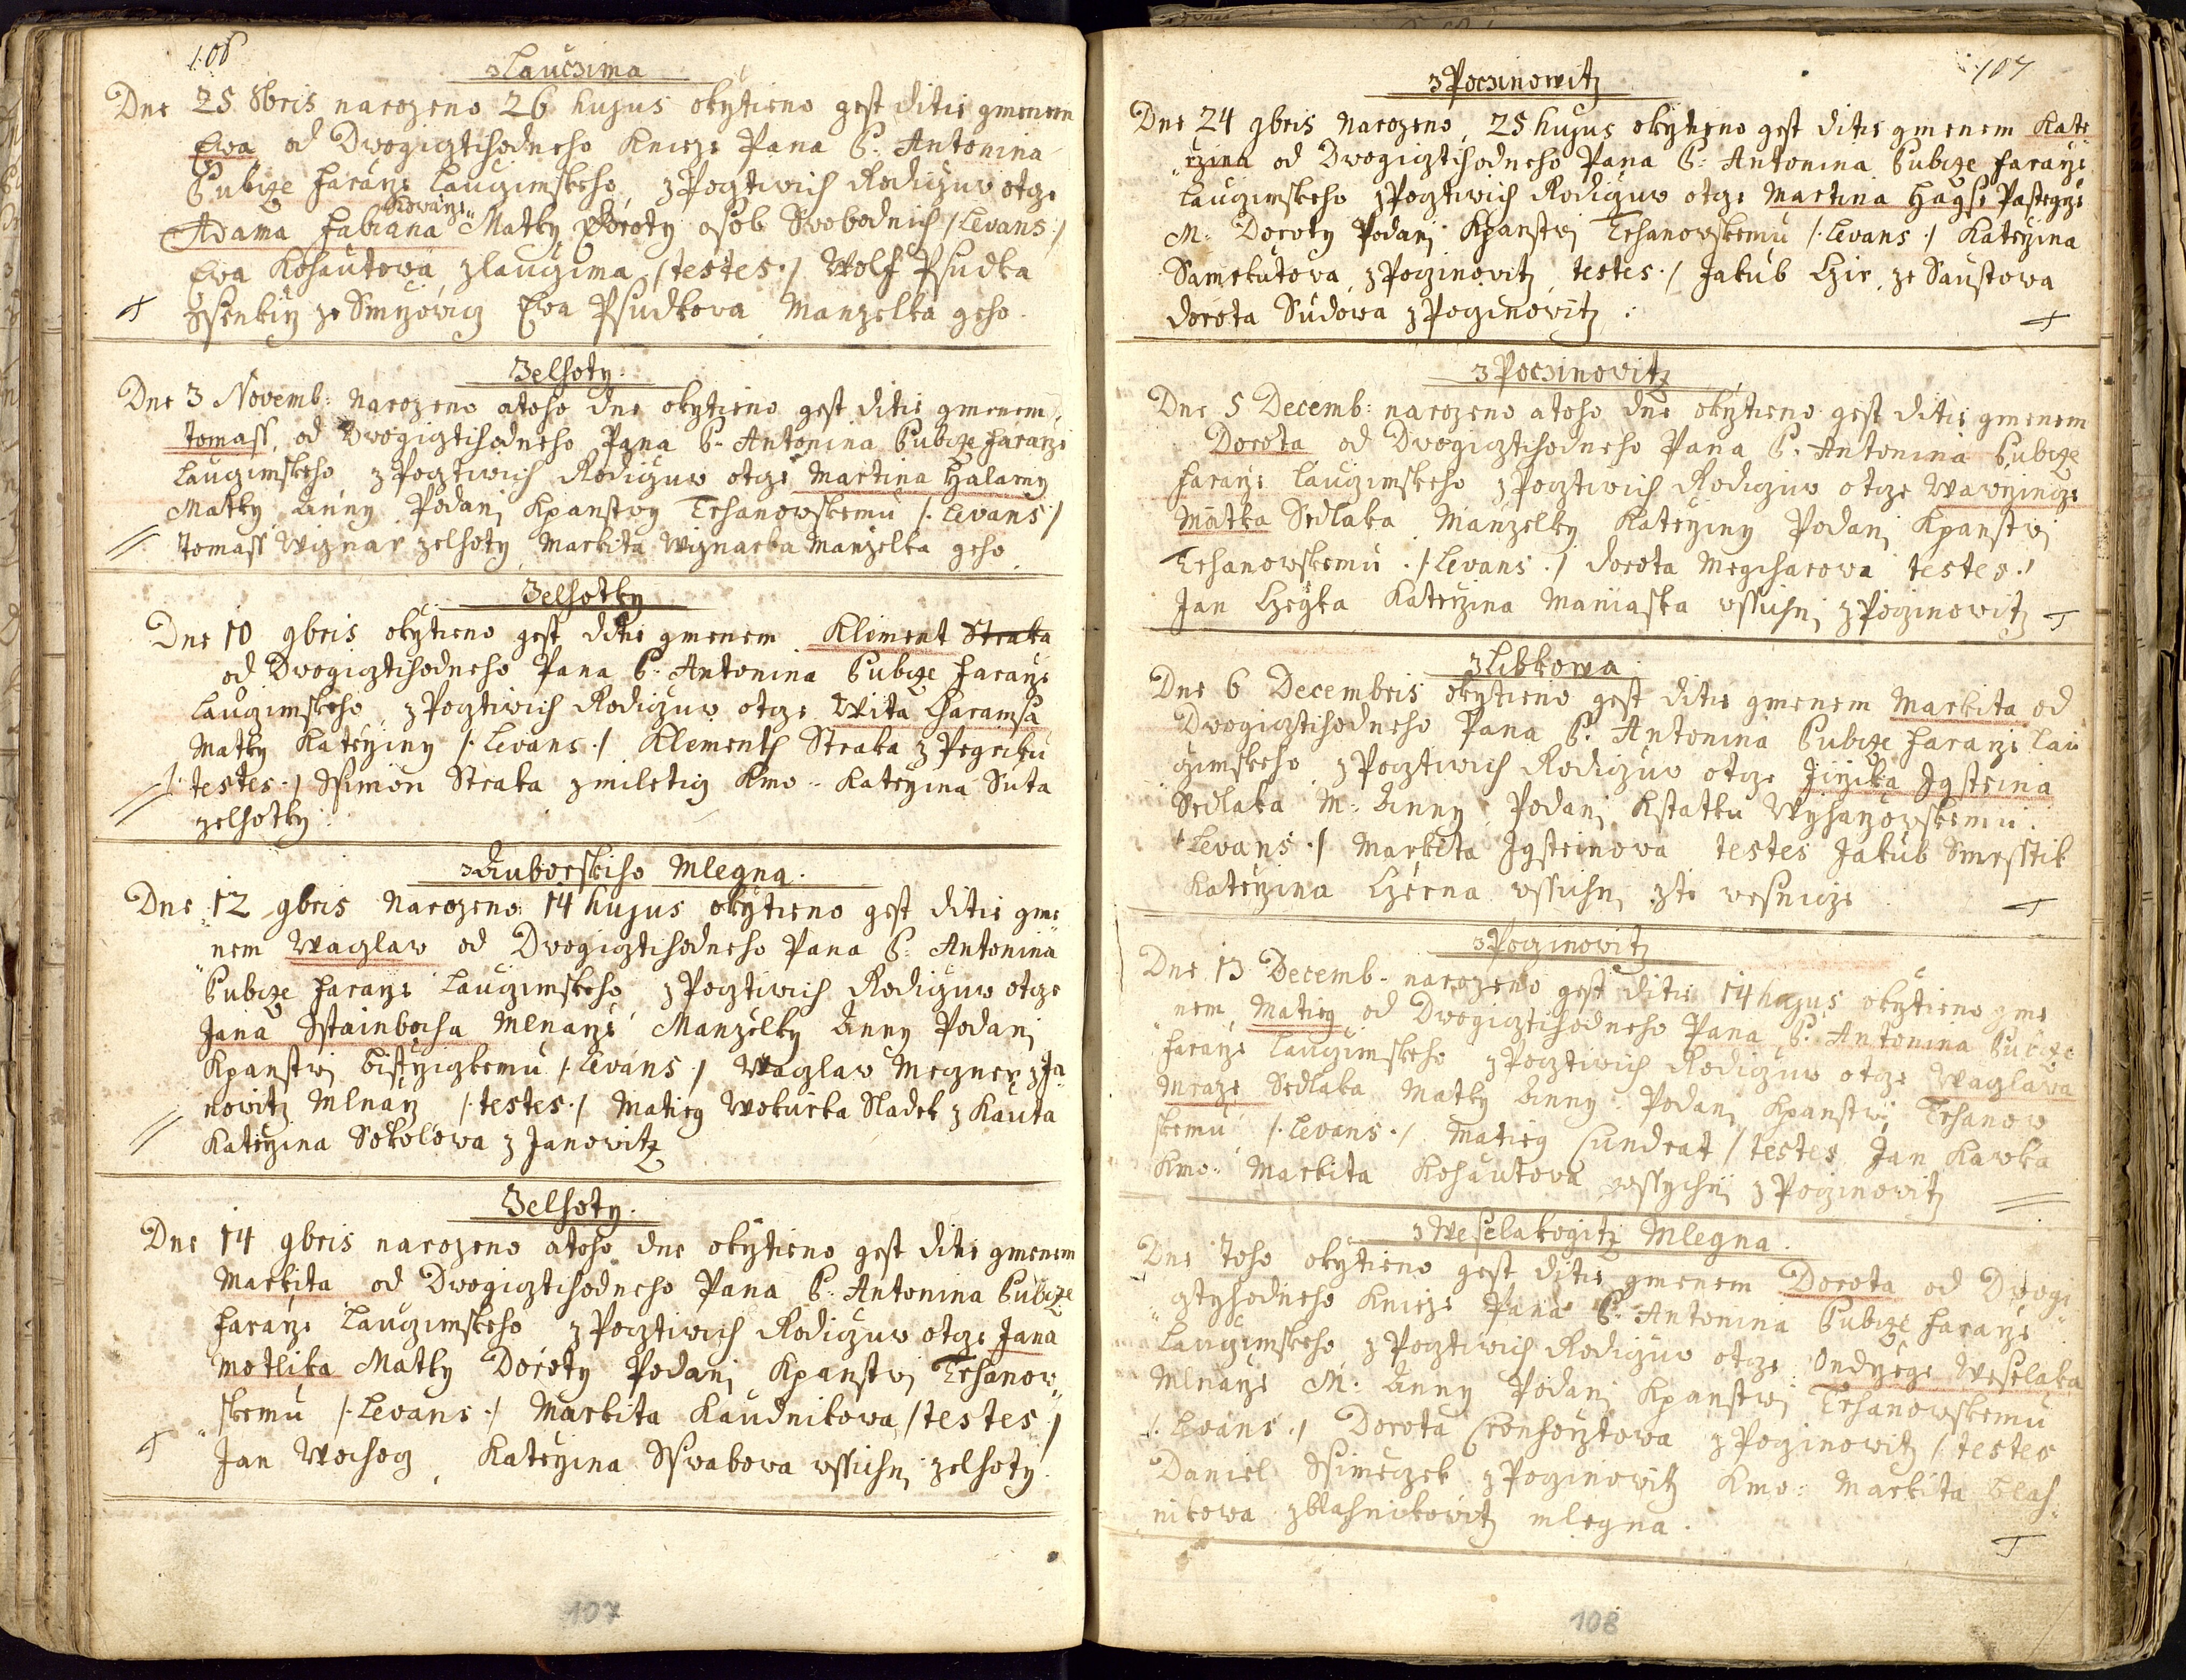 106
z Lauczima
Dne 25 8bris narozeno 26 hujus okržtieno gest ditie gmenem
Ewa od Dwogigztihodneho Knieze Pana P. Antonina
Bubcze Faraře Laucimskeho, z Pogtiwich Rodiczuw otcze
Kowaře
Adama Fabiana Matky Doroty osob Swobodnich /Levans:/
Ewa Kohautowa z Laucima /testes./ Wolf Psudka
Ssenkiř ze Smržowicz Ewa Psudkowa Manzelka geho.
Zelhoty.
Dne 3 Novemb: Narozeno a toho dne okržtieno gest ditie gmenem
Tomass od Dwogigztihodneho Pana P. Antonina Bubcze Faraře
Laucimskeho z Pogtiwich Rodiczuw otcze Martina Halamy
Matky Anny Podani Kpanstwy Trhanowskemu /:Levans:/
Tomass Wignar zelhoty Markita Wignarka Manzelka geho
Zelhotky
Dne 10 9bris okržtieno gest ditie gmenem Kliment Straka
od Dwogigztihodneho Pana P. Antonina Bubcze Faraře
Laucimskeho, z Pogtiwich Rodiczuw otcze Wita Charamsa
Matky Kateřiny /:Levans:/ Klementh Straka z Pegreku
/: testes:/ Ssimon Straka z miletiz Kmo: Kateřina Suta
zelhotky
z Duborskiho Mlegna.
Dne 12 9bris Narozeno 14 hujus okržtieno gest ditie gme
nem Waglaw od Dwogigztihodneho Pana P. Antonina
Bubcze Faraře Laucimskeho z Pogtiwich Rodiczuw otcze
Jana Sstainbocha Mlnaře Manzelky Anny Podani
Kpanstwi Bistřizkemu /:Levans:/ Waglaw Megner z Ja
nowitz Mlnař /:testes:/ Matieg Wokurka Sladek z Kauta
Kateřina Sokolowa z Janowitz
Zelhoty.
Dne 14 9bris narozeno a toho dne okržtieno gest ditie gmenem
Markita od Dwogigztihodneho Pana P. Antonina Bubcze
Faraře Laucimskeho z Pogtiwich Rodiczuw otcze Jana
Motlika Matky Doroty Podani Kpanstwi Trhanow
skemu /:Levans:/ Markita Kaudnikowa /testes:/
Jan Wochog, Kateřina Sswabowa wssichni zelhoty.
107
107
z Poczinowitz
Dne 24 9bris Narozeno, 25 hujus okržtieno gest ditie gmenem Kate
řzina od Dwogigztihodneho Pana P: Antonina Bubcze Faraře
Laucimskeho z Pogtiwich Rodiczuw otcze Martina Hagse Pasteyře
M: Doroty Podani Kpanstwi Trhanowskemu /:Levans:/ Kateřzina
Samekutowa, z Poczinowitz, testes:/ Jakub Cžir, ze Saustowa
Dorota Sudowa z Poczinowitz :
z Poczinowitz
Dne 5 Decemb: narozeno a toho dne okržtieno gest ditie gmenem
Dorota od Dwogigztihodneho Pana P. Antonina Bubcze
Faraře Laucimskeho z Pogtiwich Rodiczuw otcze Wawřincze
Matka Sedlaka Manzelky Kateřziny Podani Kpanstwi
Trhanowskemu ./:Levans:/ Dorota Megcharowa testes:/
Jan Cžeyka Kateřzina Maniaska wssichni z Poczinowitz
z Libkowa
Dne 6 Decembris okržtieno gest ditie gmenem Markita od
Dwogigztihodneho Pana P. Antonina Bubcze Faraře Lau
cimskeho z Pogtiwich Rodiczuw otcze Jiřzika Igsteina
Sedlaka M: Anny Podani Kstatku Wyhařowskemu.
/:Levans:/ Markita Igsteinowa testes Jakub Smrsstik
Kateřzina Cžerna wssichni zte wesnicze
z Poczinowitz
Dne 13 Decemb. narozeno gest ditie 14 hujus okržtieno gme
nem Matieg od Dwogigztihodneho Pana P. Antonina Bubcze
Faraře Laucimskeho z Pogtiwich Rodiczuw otcze Waglawa
Mraze Sedlaka Matky Anny Podani Kpanstwi Trhanow
skemu /:Levans:/ Matieg Cundrat /testes Jan Kawka
Kmo: Markita Kohautowa wssychni z Poczinowitz
z Weselakogitz Mlegna.
Dne toho okržtieno gest ditie gmenem Dorota od Dwogi
gztyhodneho Knieze Pana P. Antonina Bubcze Faraře
Laucimskeho z Pogtiwich Rodiczuw otcze Ondřege Weselaka
Mlnaře M: Anny Podani Kpanstwi Trhanowskemu
/:Levans:/ Dorota Cronhořtowa z Poczinowitz /testes
Daniel Ssimeczek z Poczinowitz Kmo: Markita Blah
nikowa z Blahnikowitz mlegna.
108